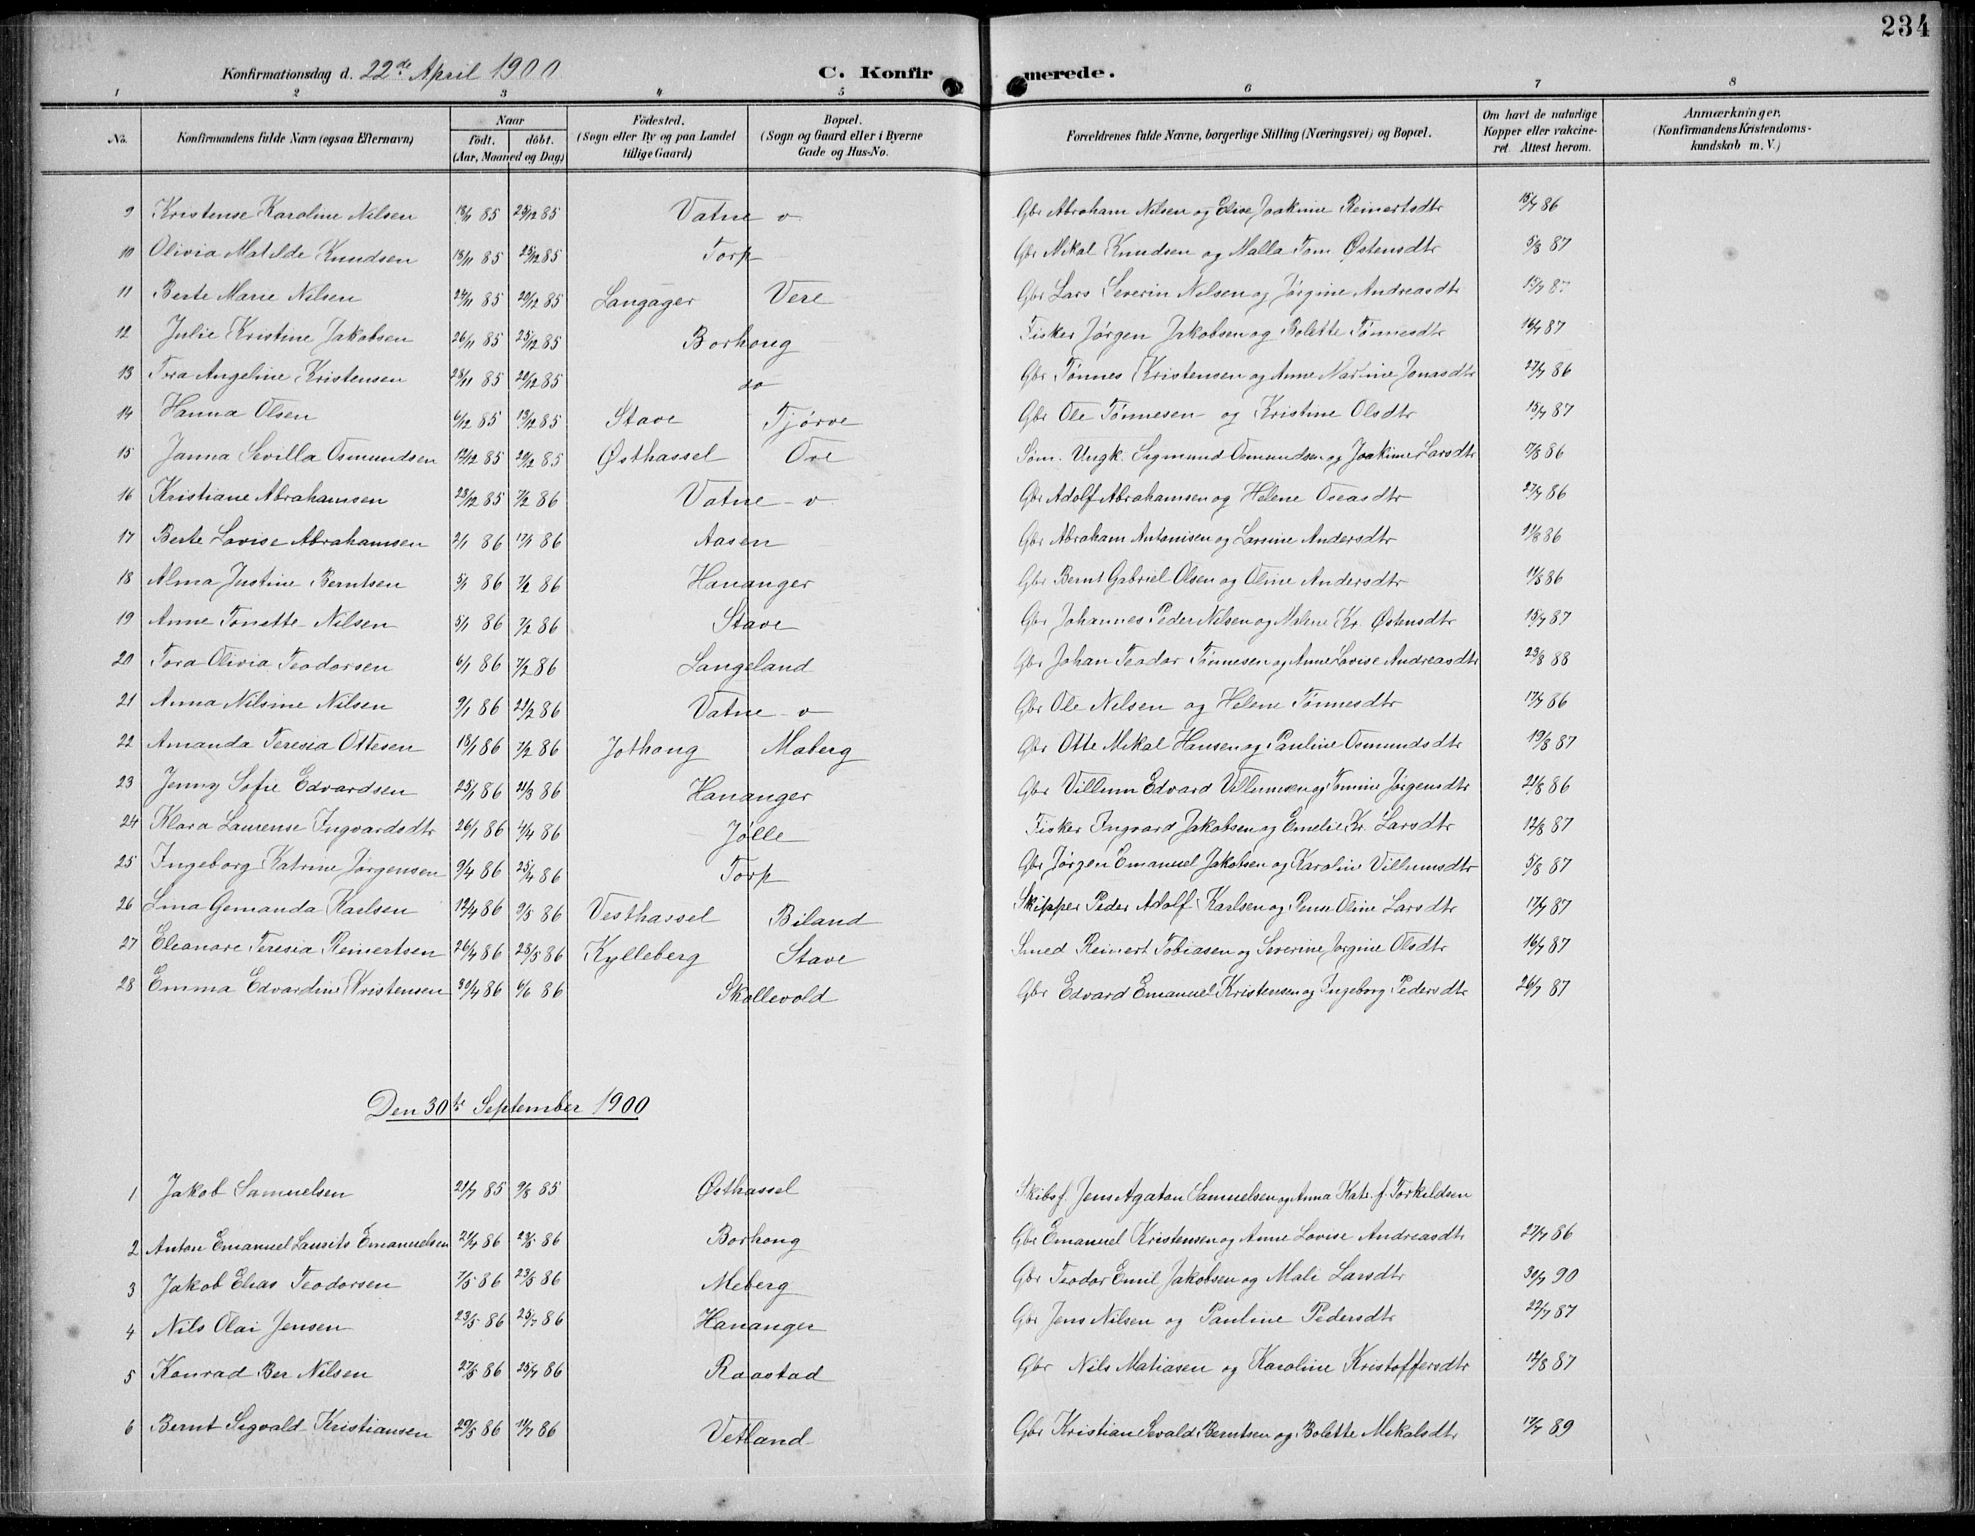 234
Konfirmationsdag d. 22de April 1900 C. Konfirmerede.
1 2 3 4 5 6 7 8
No. Konfirmandens fulde Navn (ogsaa Efternavn) Naar født. døbt. (Aar, Maaned og Dag) Fødested. (Sogn eller By og paa Landet tillige Gaard) Bopæl. (Sogn og Gaard eller i Byerne Gade og Hus-No. Forældrenes fulde Navne, borgerlige Stilling (Næringsvei) og Bopæl. Om havt de naturlige Kopper eller vakcineret. Attest herom. Anmærkninger. (Konfirmandens Kristendomskundskab m. V.)
9 Kristense Karoline Nilsen 18/11 85 25/12 85 Vatne v Gbr Abraham Nilsen og Elise Joakime Reinertsdtr 15/7 86
10 Olivia Matilde Knudsen 18/11 85 25/12 85 Torp Gbr Mikal Knudsen og Malla Tom. Østensdtr 5/8 87
11 Berte Marie Nilsen 24/11 85 20/12 85 Langager Vere Gbr Lars Severin Nilsen og Jørgine Andreasdtr
12 Julie Kristine Jakobsen 26/11 85 25/12 85 Borhoug Fisker Jørgen Jakobsen og Bolette Tønnesdtr 16/7 87
13 Tora Angeline Kristensen 28/11 85 20/12 85 do Gbr Tønnes Kristensen og Anne Martine Jonasdtr 27/7 86
14 Hanna Olsen 6/12 85 19/12 85 Stave Tjørve Gbr Ole Tønnesen og Kristine Olsdtr 15/7 87
15 Janna Sevilla Osmundsen 12/12 85 20/12 85 Østhassel Ore Søm. Ungk. Sigmund Osmundsen og Joakime Larsdtr 17/8 86
16 Kristiane Abrahamsen 23/12 85 7/2 86 Vatne - v Gbr Adolf Abrahamsen og Helene Oseasdtr 27/7 86
17 Berte Lovise Abrahamsen 2/1 86 17/1 86 Aasen Gbr Abraham Antonisen og Larsine Andersdtr 11/8 86
18 Alma Justine Berntsen 5/1 86 7/2 86 Hananger Gbr Bernt Gabriel Olsen og Oline Andersdtr 11/8 86
19 Anne Tonette Nilsen 5/1 86 7/2 86 Stave Gbr Johannes Peder Nilsen og Malene Kr. Østensdtr 15/7 87
20 Tora Olivia Teodorsen 6/1 86 7/2 86 Langeland Gbr Johan Teodor Tønnesen og Anne Lovise Andreasdtr 23/8 88
21 Anna Nilsine Nilsen 9/1 86 21/2 86 Vatne - v Gbr Ole Nilsen og Helene Tønnesdtr 17/7 86
22 Amanda Teresia Ottesen 18/1 86 7/2 86 Jothoug Meberg Gbr Otte Mikal Hansen og Pauline Osmundsdtr 19/8 87
23 Jenny Sofie Edvardsen 25/1 86 21/3 86 Hananger Gbr Villum Edvard Villumsen og Tomine Jørgensdtr 21/8 86
24 Klara Laurense Ingvardsdtr 26/1 86 4/4 86 Jølle Fisker Ingvard Jakobsen og Emelie Kr. Larsdtr 12/8 87
25 Ingeborg Katrine Jørgensen 9/4 86 25/4 86 Torp Gbr Jørgen Emanuel Jakobsen og Karoline Villumsdtr 5/8 87
26 Lina Gemanda Karlsen 12/4 86 9/5 86 Vesthassel Biland Skipper Peder Adolf Karlsen og Oline Larsdtr 17/7 87
27 Eleanore Teresia Reinertsen 26/4 86 23/5 86 Kylleberg Stave Smed Reinert Tobiasen og Severine Jørgine Olsdtr 16/7 87
28 Emma Edvardine Kristensen 30/4 86 6/6 86 Skollevold Gbr Edvard Emanuel Kristensen og Ingeborg Pedersdtr 26/7 87
Den 30te September 1900
1 Jakob Samuelsen 21/7 85 9/8 85 Østhassel Skibsf. Jens Agaton Samuelsen og Anna Katr. f. Torkildsen
2 Anton Emanuel Laurits Emanuelsen 21/4 86 23/5 86 Borhoug Gbr Emanuel Kristensen og Anne Lovise Andreasdtr 27/7 86
3 Jakob Elias Teodorsen 7/5 86 23/5 86 Meberg Gbr Teodor Emil Jakobsen og Mali Larsdtr 30/7 90
4 Nils Olai Jensen 23/5 86 25/7 86 Hananger Gbr Jens Nilsen og Pauline Pedersdtr 22/7 87
5 Konrad Ber Nilsen 27/5 86 25/7 86 Raastad Gbr Nils Matiasen og Karoline Kristoffersdtr 12/8 87
6 Bernt Sigvald Kristiansen 29/5 86 11/7 86 Vetland Gbr Kristian Sevald Berntsen og Bolette Mikalsdtr 17/7 89